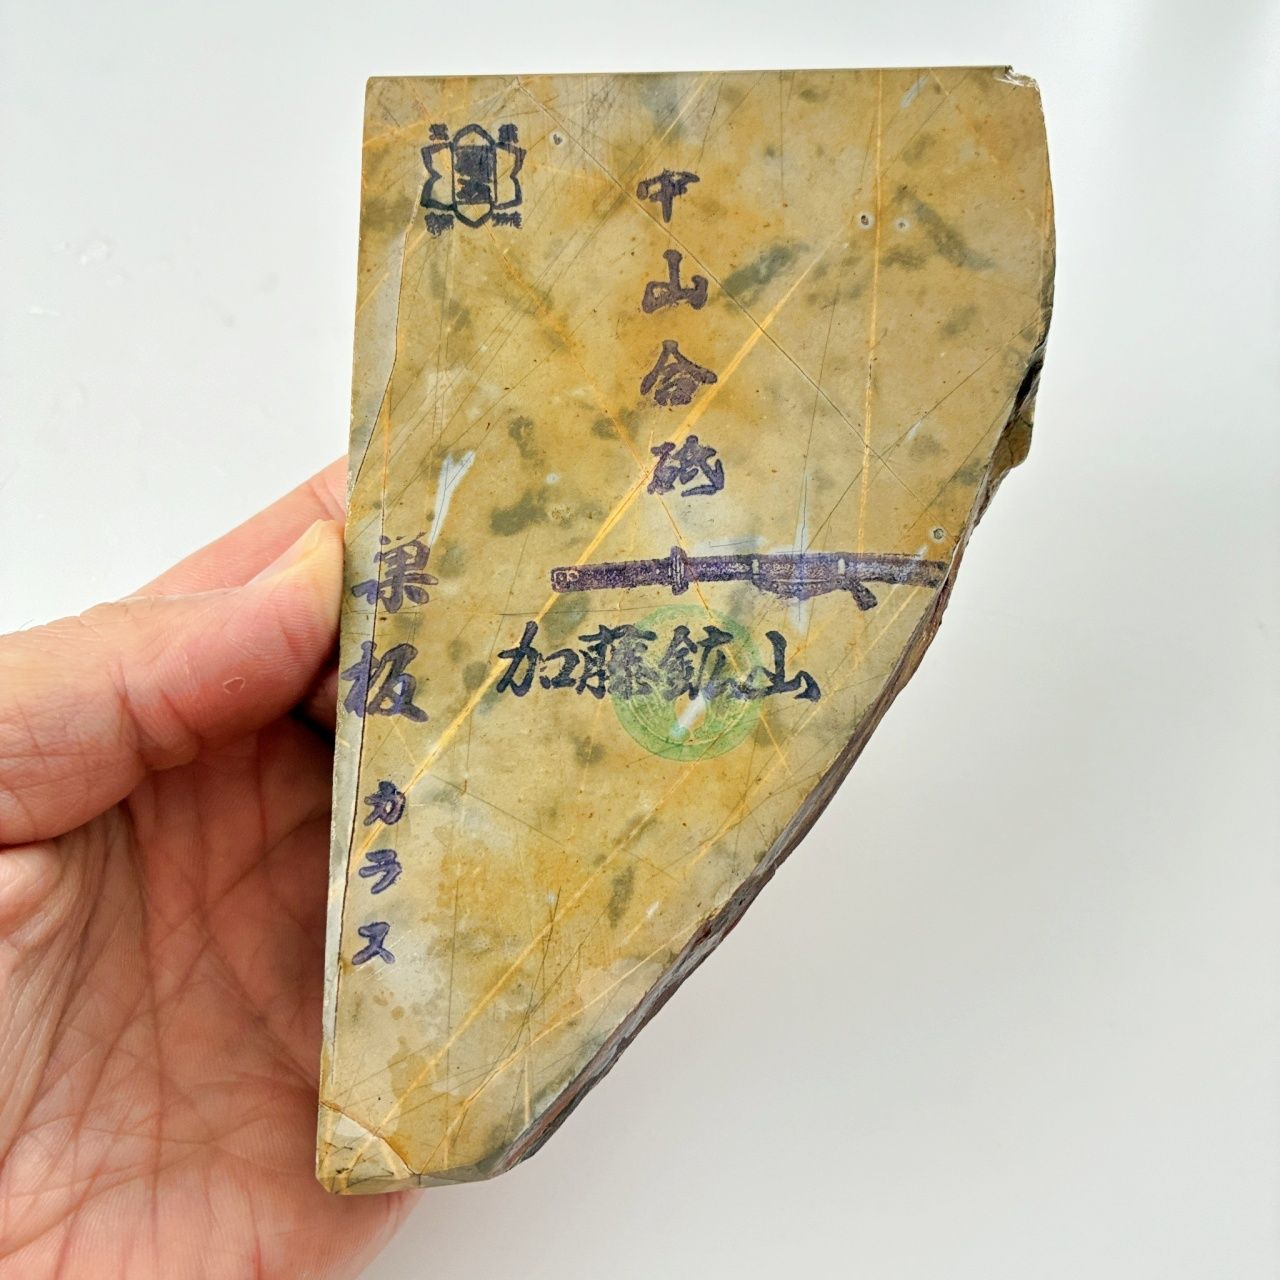 中山合砥
巣板 カラス
加藤鉱山